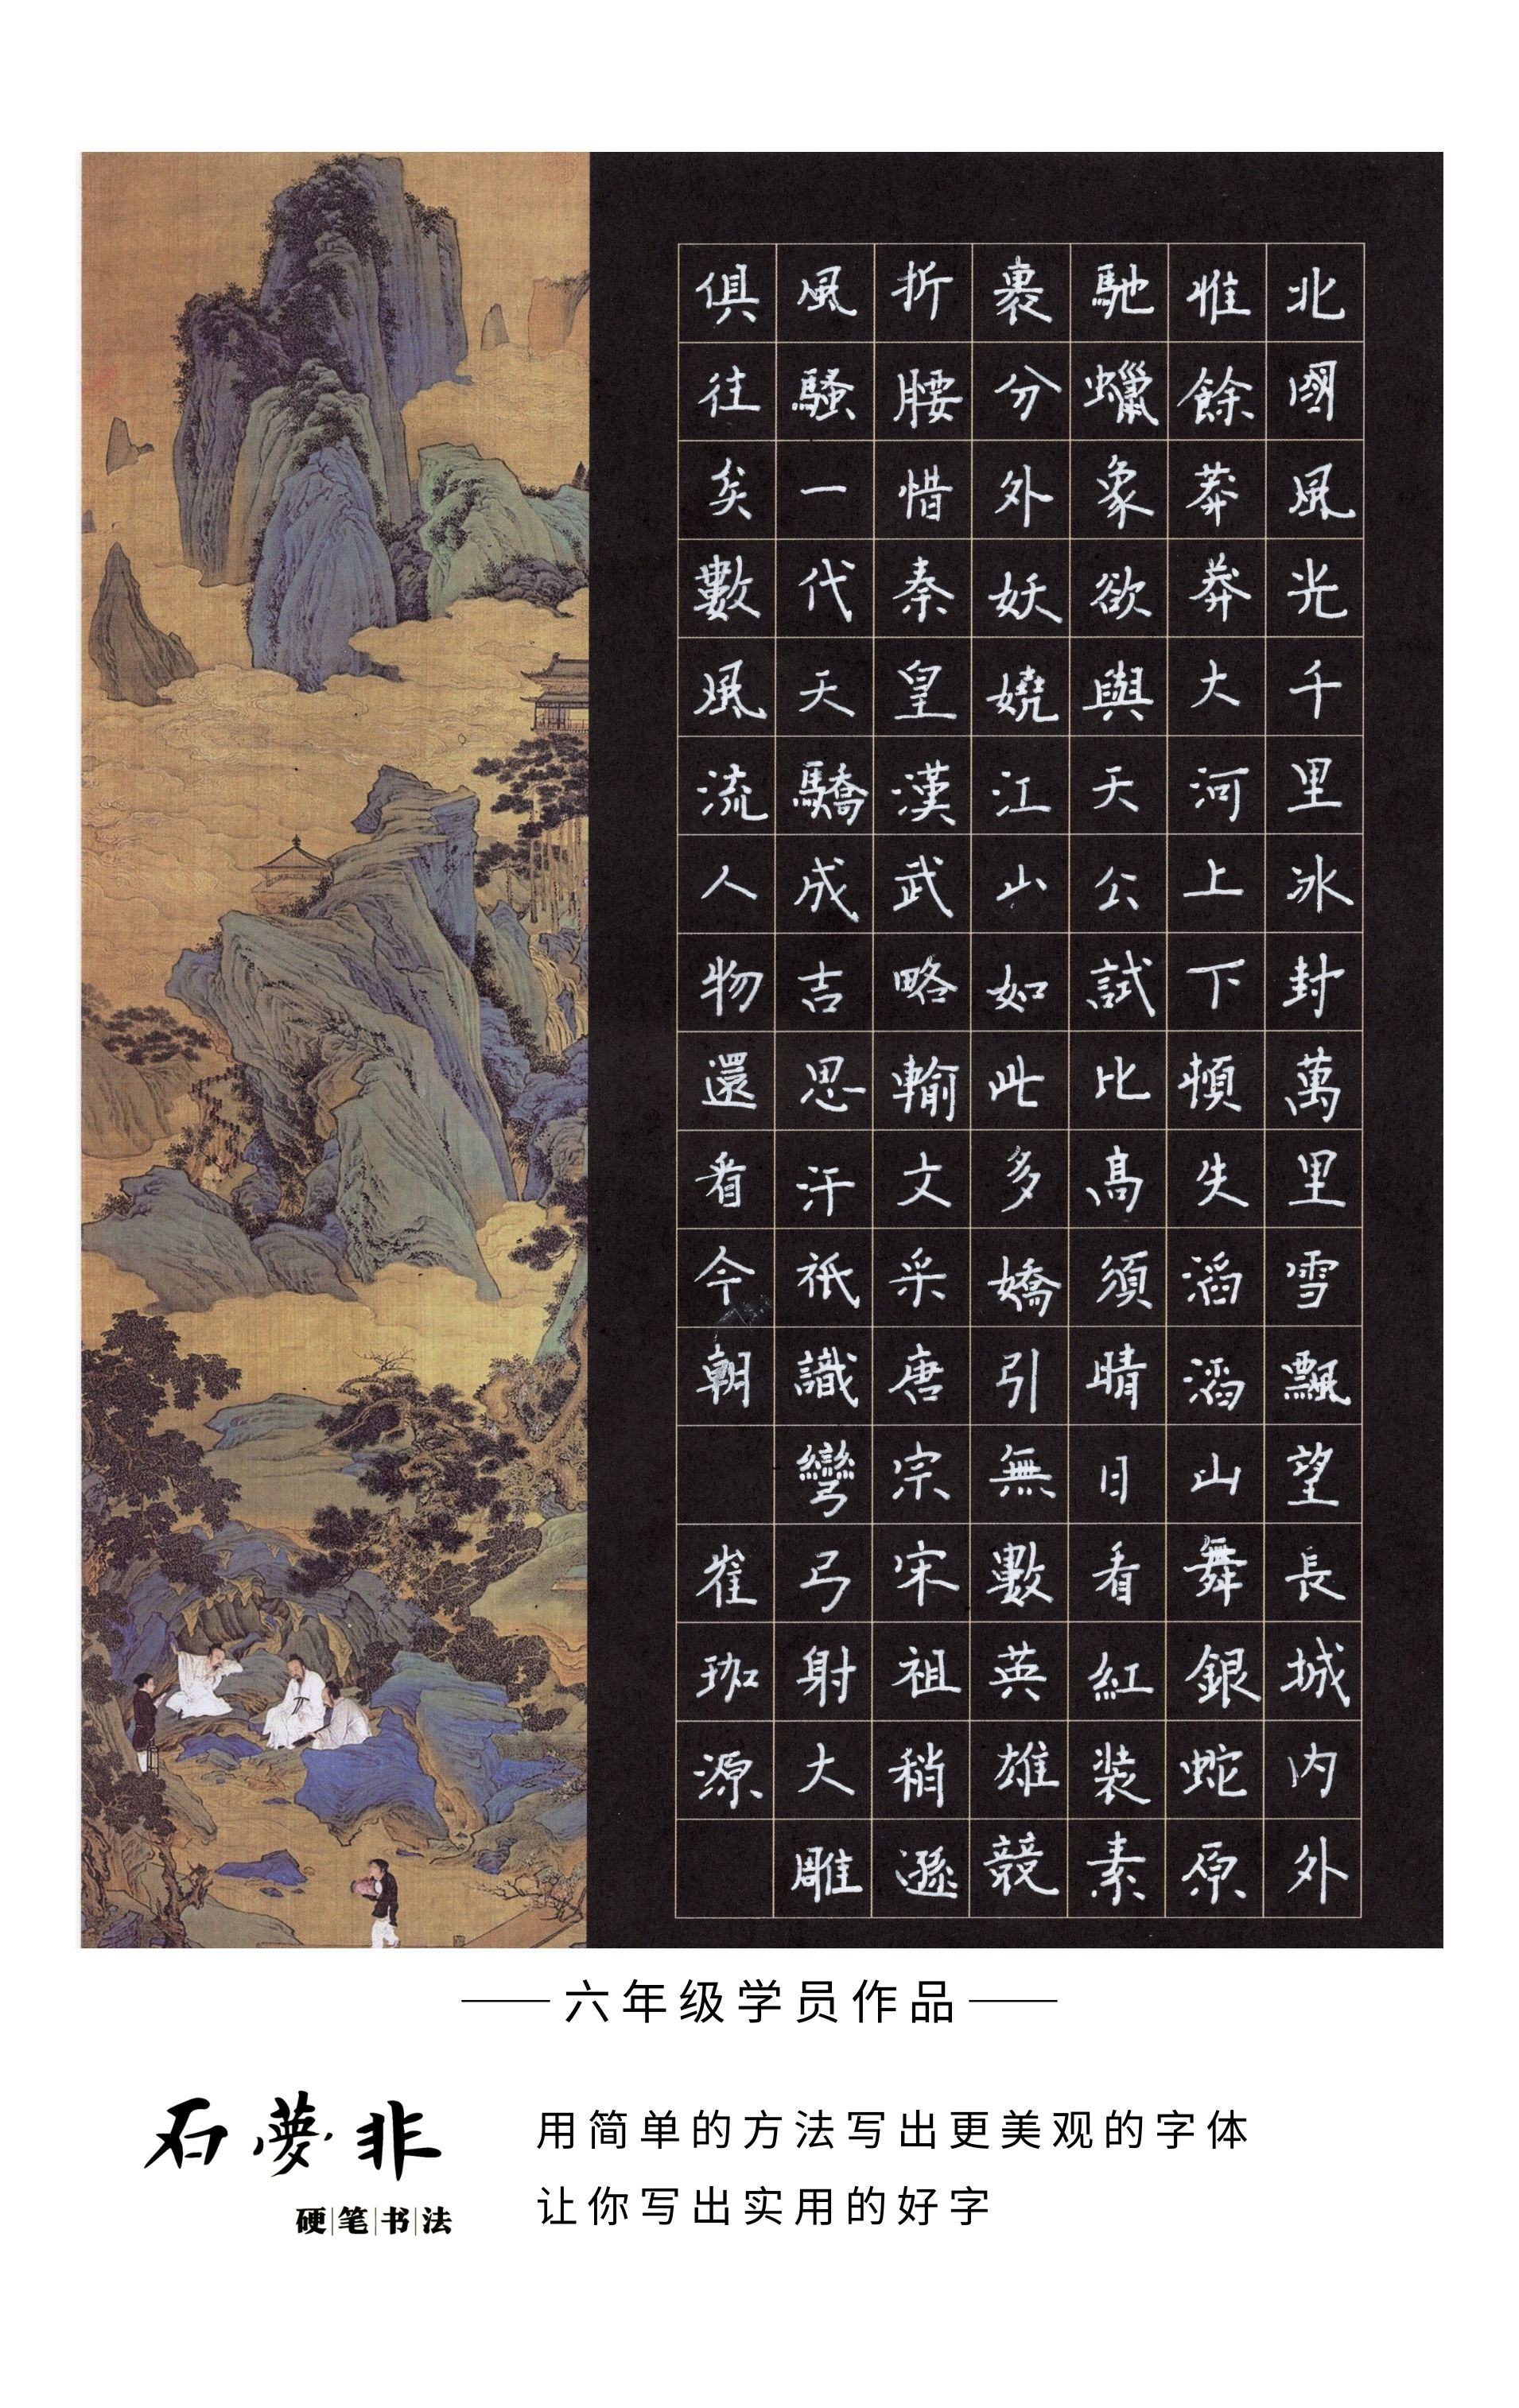 北國風光千里冰封萬里雪飄望長城内外
惟餘莽莽大河上下頓失滔滔山舞銀蛇原
馳蠟象欲與天公試比高須晴日看紅装素
裹分外妖嬈江山如此多嬌引無數英雄競
折腰惜秦皇漢武略輸文采唐宗宋祖稍遜
風騷一代天驕成吉思汗祇識彎弓射大雕
俱往矣數風流人物還看今朝 崔珈源
六年级学员作品
石夢非
硬笔书法
用简单的方法写出更美观的字体
让你写出实用的好字